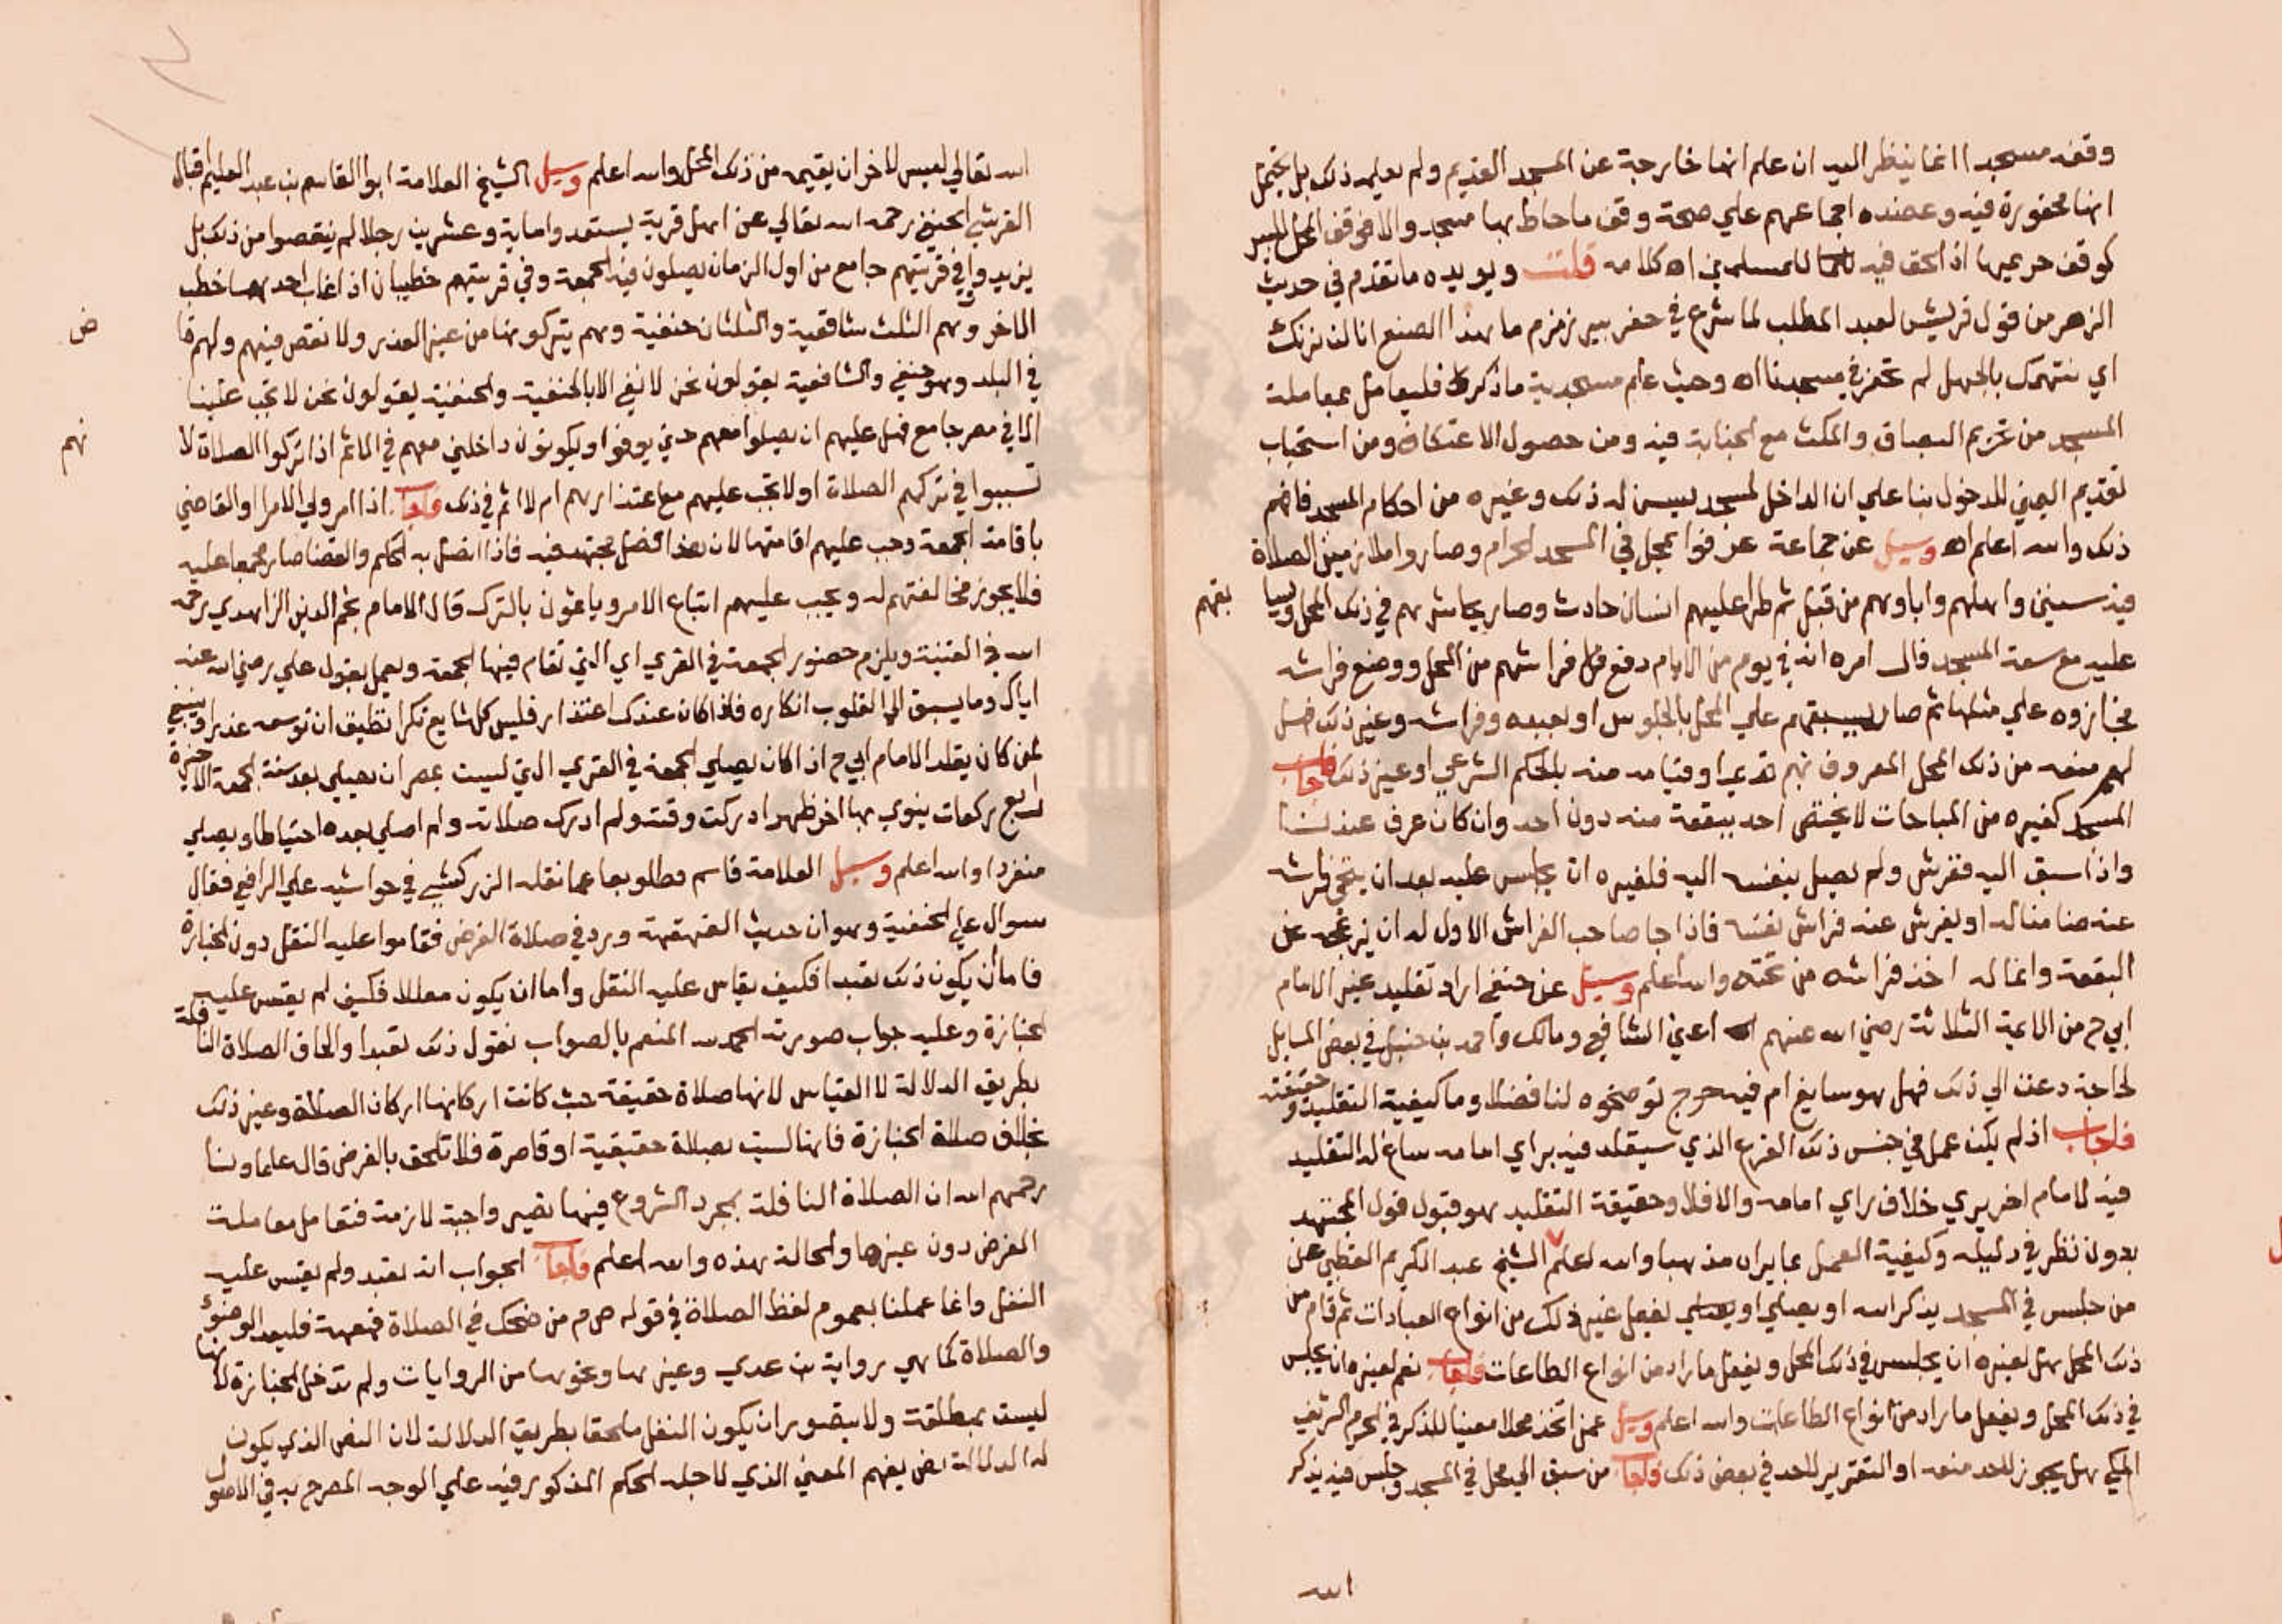 وقفه مسجدا انما ينظر اليه ان علم انها خارجة عن المسجد القديم ولم يعلم ذلك بل يحتمل
انها محفورة فيه وعضده اجماعهم علي صحة وقف ماحاط بها مسجد والا فوقف المحل للبير
كوقف حريمها اذ الحق فيه للمسلمين اه كلامه قلت ويويده ما تقدم في حديث
الزهر من قول قريش لعبد المطلب لما شرع في حفر بير زمزم ما هذا الصنع انا لن نزنك
اي نتهمك بالجهل لم تحفر في مسجدنا اه وحيث علم مسجدية ما ذكر فليعامل بمعاملة
المسجد من تحريم البصاق والمكث مع الجنابة فيه ومن حصول الاعتكاف ومن استحباب
تقديم اليمني للدخول بنا علي ان الداخل لمسجد يسن له ذلك وغيره من احكام المسجد فافهم
ذلك والله اعلم اه وسيل عن جماعة عرفوا بمحل في المسجد الحرام وصاروا ملازمين الصلاة
فيه سنين واهلهم واباوهم من قبل ثم طرا عليهم انسان حادث وصار يحاشرهم في ذلك المحل ويسا
بقهم
عليه مع سعة المسجد فال امره انه في يوم من الايام دفع فراشهم من المحل ووضع فراشه
فجازوه علي مثلها ثم صار يسبقهم علي المحل بالجلوس او بعبده وفراشه وغير ذلك فهل
لهم منعه من ذلك المحل المعروف بهم قديما وقيامه منه بالحكم الشرعي او غير ذلك فاجاب
المسجد كغيره من المباحات لا يختص احد ببقعة منه دون احد وان كان عرف عندنا
واذا سبق اليه ففرش ولم يصل بنفسه اليه فلغيره ان يجلس عليه بعد ان ينحي فراشه
عنه ضامنا له او يفرش عنه فراش نفسه فاذا جا صاحب الفراش الاول له ان يزعجه عن
البقعة وانما له اخذ فراشه من تحته والله اعلم وسيل عن حنفي اراد تقليد غير الامام
ابي ح من الايمة الثلاثة رضي الله عنهم اعني الشافعي ومالك واحمد بن حنبل في بعض المسايل
لحاجة دعت الي ذلك فهل هو سايغ ام فيه حرج توضحوه لنا فضلا وما كيفية التقليد وحقيقته
فاجاب اذ لم يكن عمل في جنس ذلك الفرع الذي سيقلد فيه براي امامه ساغ له التقليد
فيه لامام اخر يري خلاف راي امامه والا فلا وحقيقة التقليد هو قبول قول المجتهد
بدون نظر في دليله وكيفية العمل بما يراه مذهبا والله اعلم الشيخ عبد الكريم القطبي عن
من جلس في المسجد يذكر الله او يصلي او يفعل غير ذلك من انواع العبادات ثم قام من
ذلك المحل هل لغيره ان يجلس في ذلك المحل ويفعل ما راد من انواع الطاعات فاجاب نعم لغيره ان يجلس
في ذلك المحل ويفعل ما راد من انواع الطاعات والله اعلم وسيل عمن اتخذ محلا معينا للذكر في الحرم الشريف
المكي هل يجوز لاحد منعه او التقرير لاحد في بعض ذلك فاجاب من سبق الي محل في المسجد وجلس فيه يذكر
الله
الله تعالي ليس لاخر ان يقيمه من ذلك المحل والله اعلم وسيل الشيخ العلامة ابوا القاسم بن عبد العليم اقبال
القرشي الحنفي رحمه الله تعالي عن اهل قرية يستعدوا ماية وعشرين رجلا لم ينقصوا من ذلك بل
يزيدوا وفي قريتهم جامع من اول الزمان يصلون فيه الجمعة وفي قريتهم خطيبان اذ اغاب احدهما خطب
الاخر وهم الثلث شافعية والثلثان حنفية وهم يتركونها من غير العذر ولا نقص فيهم ولهم قا
ض
في البلد وهو حنفي والشافعية يقولون نحن لا نفي الا بالحنفية والحنفية يقولون نحن لا تجب علينا
الا في مصر جامع فهل عليهم ان يصلوا معهم حتي يوفوا ويكونون داخلين معهم في الماثم اذا تركوا الصلاة لا
نهم
تسببوا في تركهم الصلاة او لا تجب عليهم مع اعتذارهم ام لا اثم في ذلك فاجاب اذا امر ولي الامر او القاضي
باقامة الجمعة وجب عليهم اقامتها لان هذا فصل مجتهد فيه فاذا اتصل به الحكم والقضا صار مجمعا عليه
فلا يجوز مخالفتهم له ويجب عليهم اتباع الامر وياثمون بالترك قال الامام نجم الدين الزاهدي رحمه
الله في القنية ويلزم حضور الجمعة في القري اي التي تقام فيها الجمعة ويعمل بقول علي رضي الله عنه
اياك وما يسبق الي القلوب انكاره فاذا كان عندك اعتذار فليس كل شايع نكرا تطيق ان توسعه عذرا وينبغي
لمن كان يقلد الامام ابي ح اذا كان يصلي الجمعة في القري التي ليست بمصر ان يصلي بعد سنة الجمعة الاخيرة
اربع ركعات ينوي بها اخر ظهر ادركت وقته ولم ادرك صلاته ولم اصلي بعده احتياطا ويصلي
منفردا والله اعلم وسيل العلامة قاسم قطلوبعا عما نقله الزركشي في حواشيه علي الرافعي فقال
سوال علي الحنفية وهو ان حديث القهقهة ورد في صلاة الفرض فقاسوا عليه النفل دون الجنازة
فاما ان يكون ذلك تعبدا فكيف يقاس عليه النفل واما ان يكون معللا فكيف لم يقس عليه
الجنازة وعليه جواب صورته الحمد لله المنعم بالصواب نقول ذلك تعبدا والحاق الصلاة النافلة
بطريق الدلالة لا القياس لانها صلاة حقيقة حيث كانت اركانها اركان الصلاة وغير ذلك
بخلاف صلاة الجنازة فانها ليست بصلاة حقيقية او قاصرة فلا تلحق بالفرض قال علماونا
رحمهم الله ان الصلاة النافلة بمجرد الشروع فيها تصير واجبة لازمة فتعامل معاملة
الفرض دون غيرها والحالة هذه والله اعلم فاجاب الجواب انه تعبد ولم يقس عليه
النفل وانما عملنا بعموم لفظ الصلاة في قوله ص م من ضحك في الصلاة قهقهة فليعد الوضوء
والصلاة كما هي رواية بن عدي وغيرها ونحوها من الروايات ولم تدخل الجنازة لانها
ليست بمطلقة ولا يتصور ان يكون النفل ملحقا بطريق الدلالة لان النص الذي يكون
له الدلالة نص يفهم المعني الذي لاجله الحكم المذكور فيه علي الوجه المصرح به في الاصول